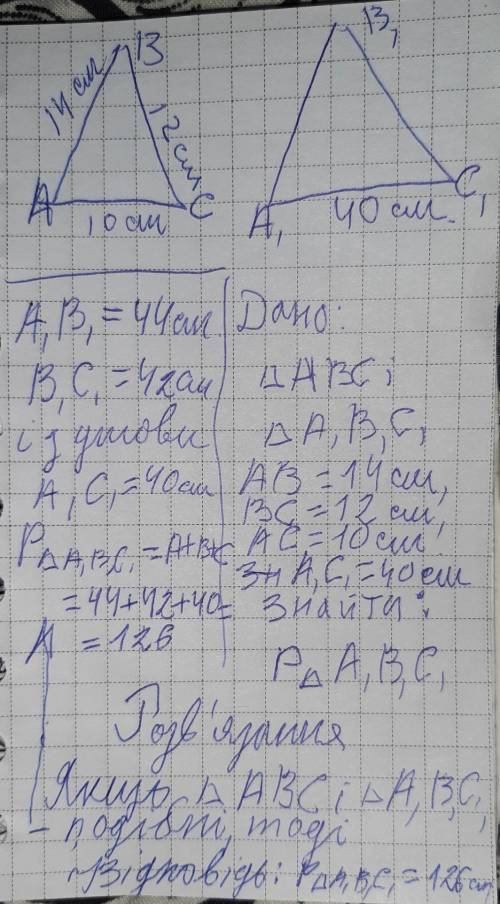 B
B₁
14 см
12 см
A
C
10 см
A₁
C₁
40 см.
A₁B₁ = 44 см
B₁C₁ = 42 см
і з умови
A₁C₁ = 40 см
P△A₁B₁C₁ = A+B+C
= 44+42+40=
= 126
Дано:
△ ABC і
△ A₁B₁C₁
AB = 14 см,
BC = 12 см,
AC = 10 см
A₁C₁ = 40 см
Знайти:
P△ A₁B₁C₁
Розв'язання
Якщо △ ABC і △ A₁B₁C₁
- подібні, тоді
Відповідь: P△A₁B₁C₁ = 126 см